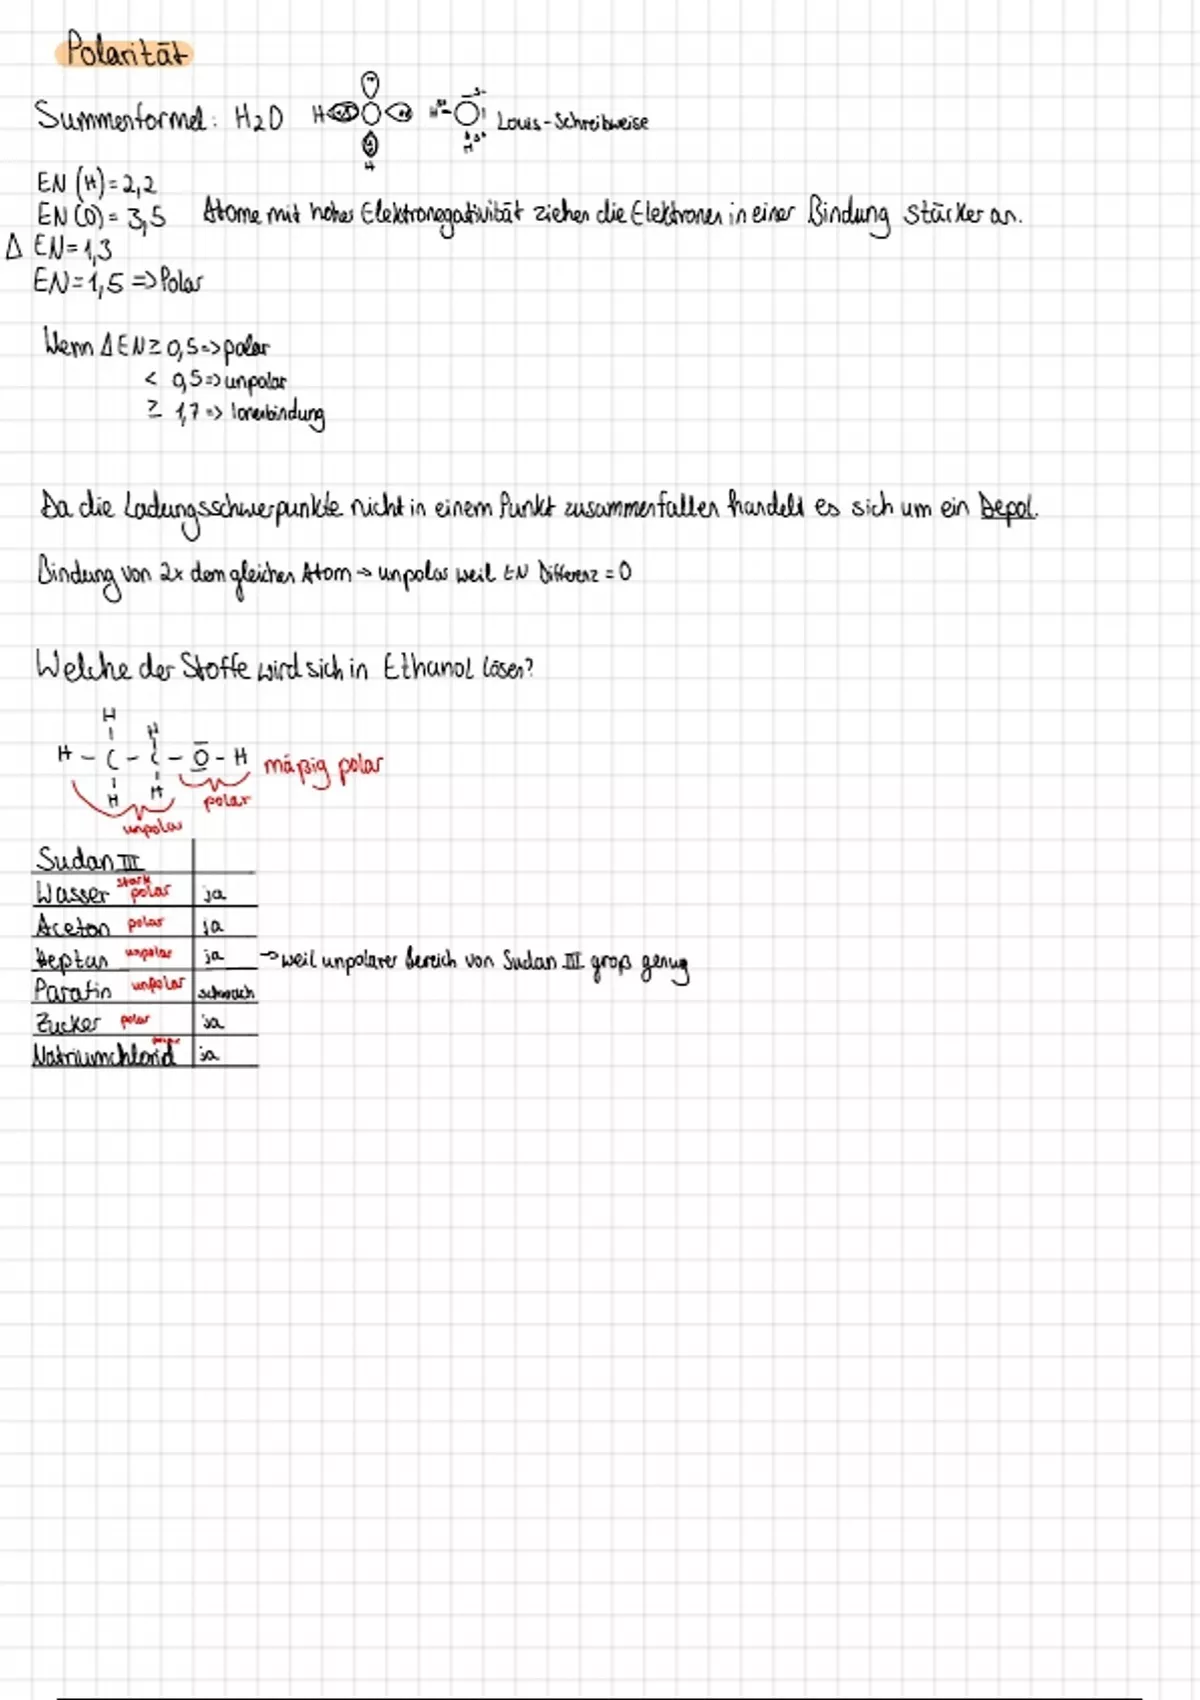 Polarität
Summenformel: H2O H H H Louis-Schreibweise
EN (H) = 2,2
EN (O) = 3,5 Atome mit hoher Elektronegativität ziehen die Elektronen in einer Bindung stärker an.
Δ EN = 1,3
EN = 1,5 => Polar
Wenn Δ EN ≥ 0,5 => polar
< 0,5 => unpolar
≥ 1,7 => Ionenbindung
Da die Ladungsschwerpunkte nicht in einem Punkt zusammenfallen handelt es sich um ein Depol.
Bindung von 2x dem gleichen Atom → unpolar weil EN Differenz = 0
Welche der Stoffe wird sich in Ethanol lösen?
H H
H - C - C - O - H mäßig polar
H H polar
unpolar
Sudan III
Wasser stark polar ja
Aceton polar ja
Heptan unpolar ja → weil unpolarer Bereich von Sudan III groß genug
Parafin unpolar schwach
Zucker polar ja
Natriumchlorid ja